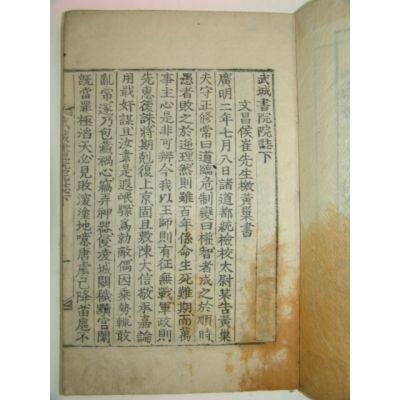 武城書院院誌下
文昌侯崔先生檄黃巢書
廣明二年七月八日諸道都統檢校太尉某告黃巢
夫守正修常曰道臨危制變曰權智者成之於順時
愚者敗之於逆理然則雖百年係命生死難期而萬
事主心是非可辨今我以王師則有征無戰軍政則
先惠後誅將期剋復上京固且敷陳大信敬承嘉諭
用戢奸謀且汝素是遐氓驟爲勍敵偶因乘勢輒敢
亂常遂乃包藏禍心竊弄神器侵凌城闕穢黷宮闈
旣當罪極滔天必見敗深塗地噫唐虞已降苗扈不